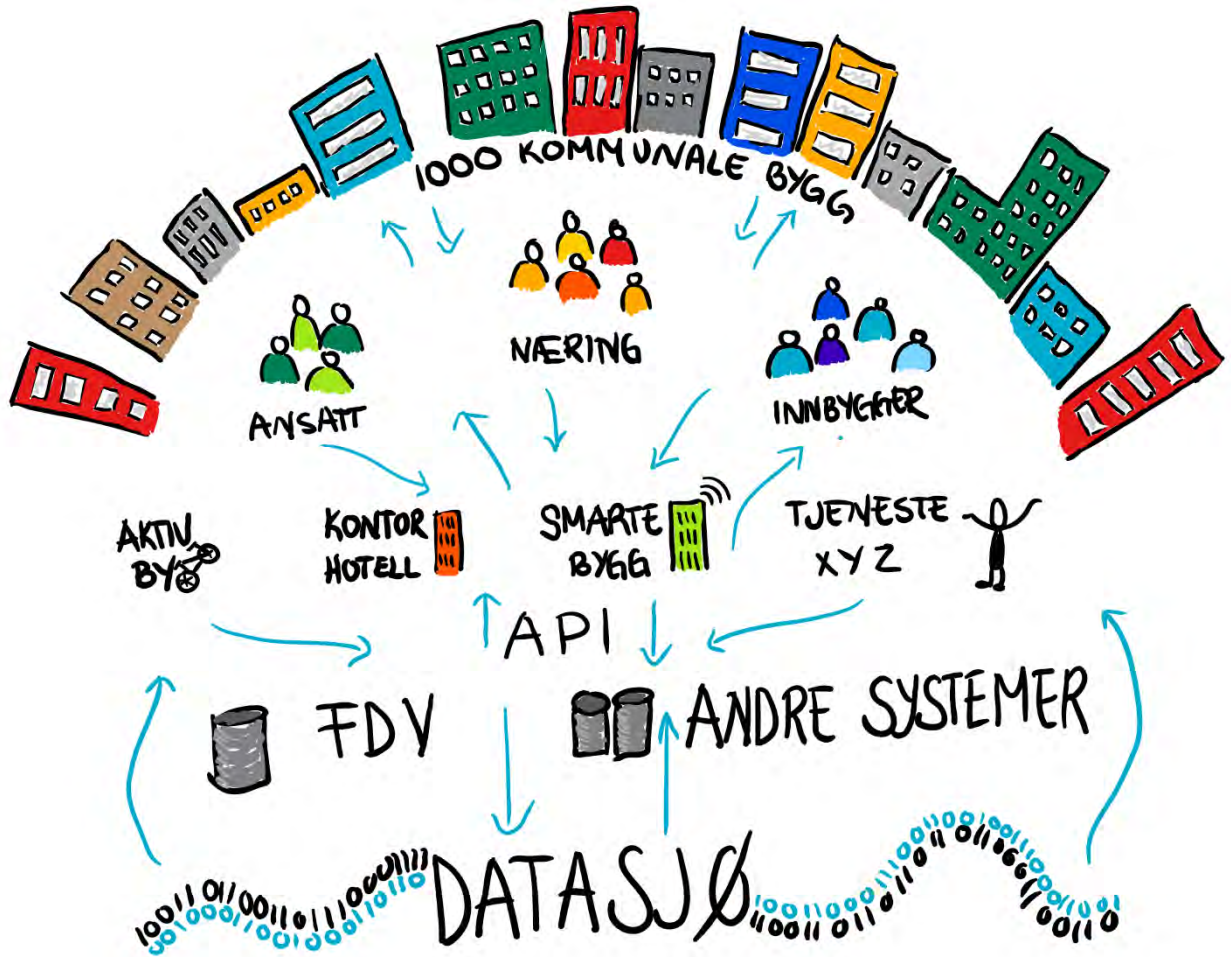 1000 KOMMUNALE BYGG
NÆRING
ANSATT
INNBYGGER
AKTIV
BY
KONTOR
HOTELL
SMARTE
BYGG
TJENESTE
XYZ
API
FDV
ANDRE SYSTEMER
DATASJØ